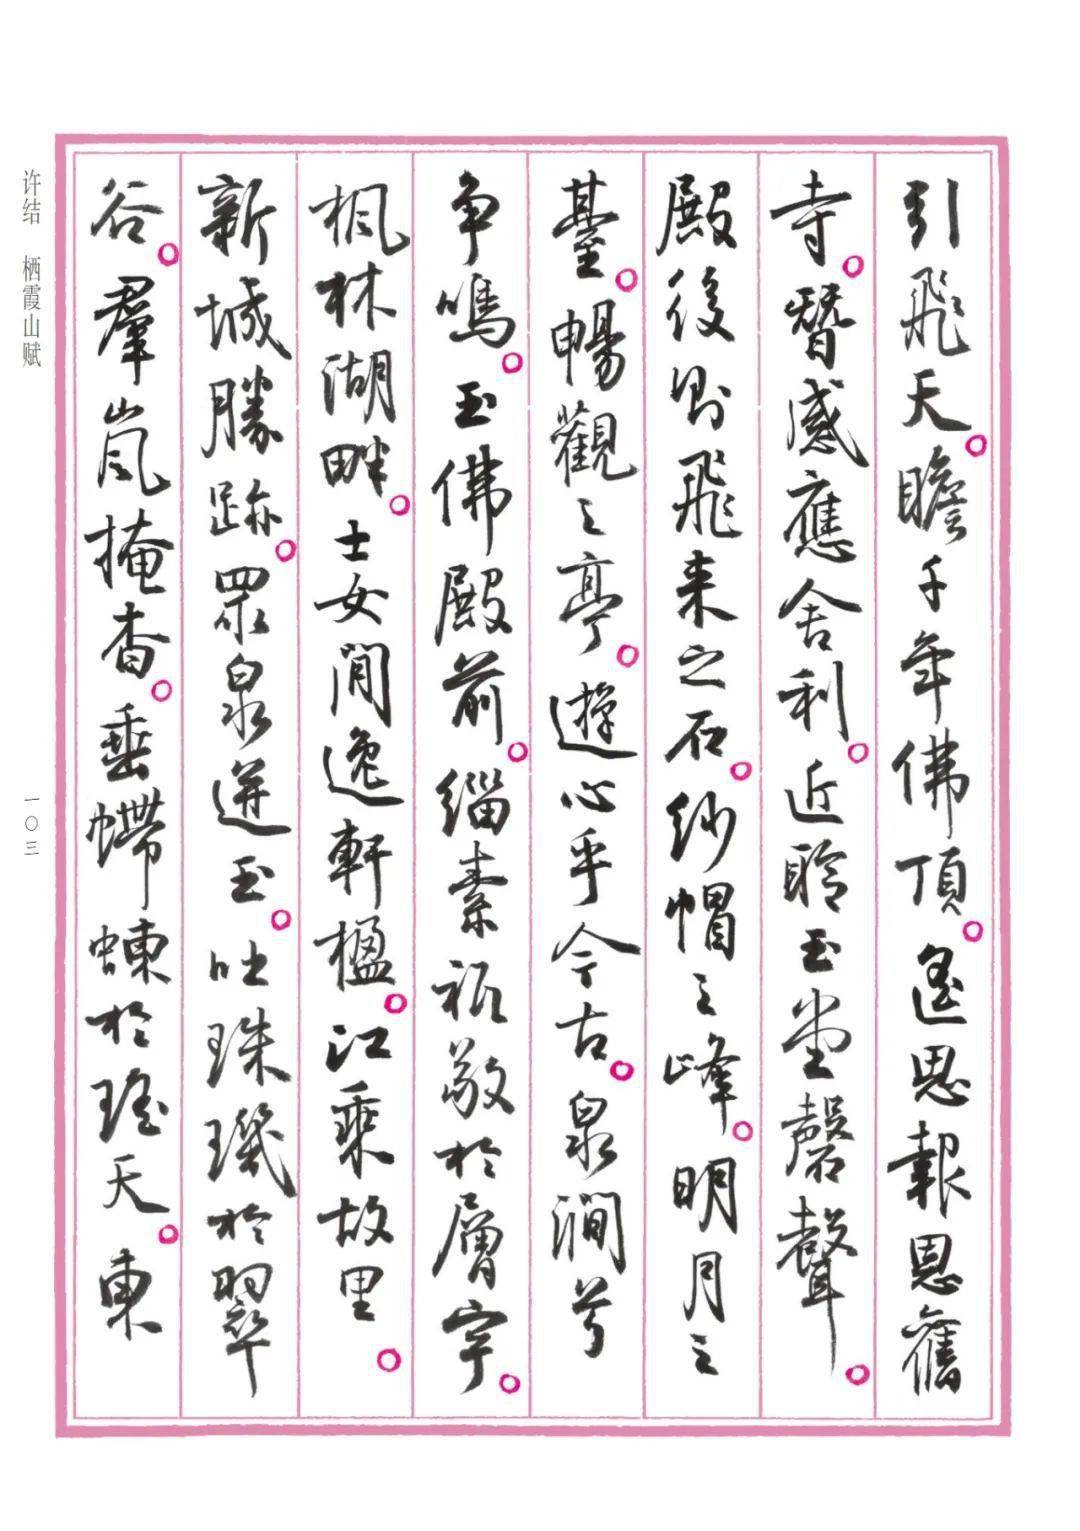 引飛天。瞻千年佛頂。遥思報恩舊
寺。感應舍利。近聆玉堂磬聲。
殿後則飛來之石。紗帽之峰。明月之
臺。暢觀之亭。遊心乎今古。泉澗兮
争鳴。玉佛殿前。緇素祗敬於層宇。
楓林湖畔。士女閒逸軒楹。江乘故里。
新城勝跡。眾泉迸玉。吐珠璣於翠
谷。羣嵐掩杳。垂螮蝀於瑤天。東
许结 栖霞山赋
一〇三